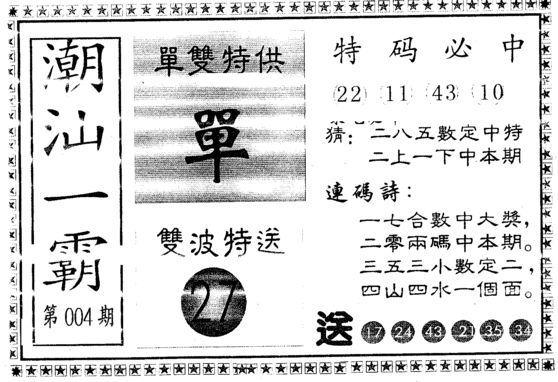 潮汕一霸
第004期
單雙特供
單
雙波特送
27
特码必中
22 11 43 10
猜：二八五數定中特
二上一下中本期
連碼詩：
一七合數中大獎，
二零兩碼中本期。
三五三小數定二，
四山四水一個面。
送 17 24 43 21 35 34